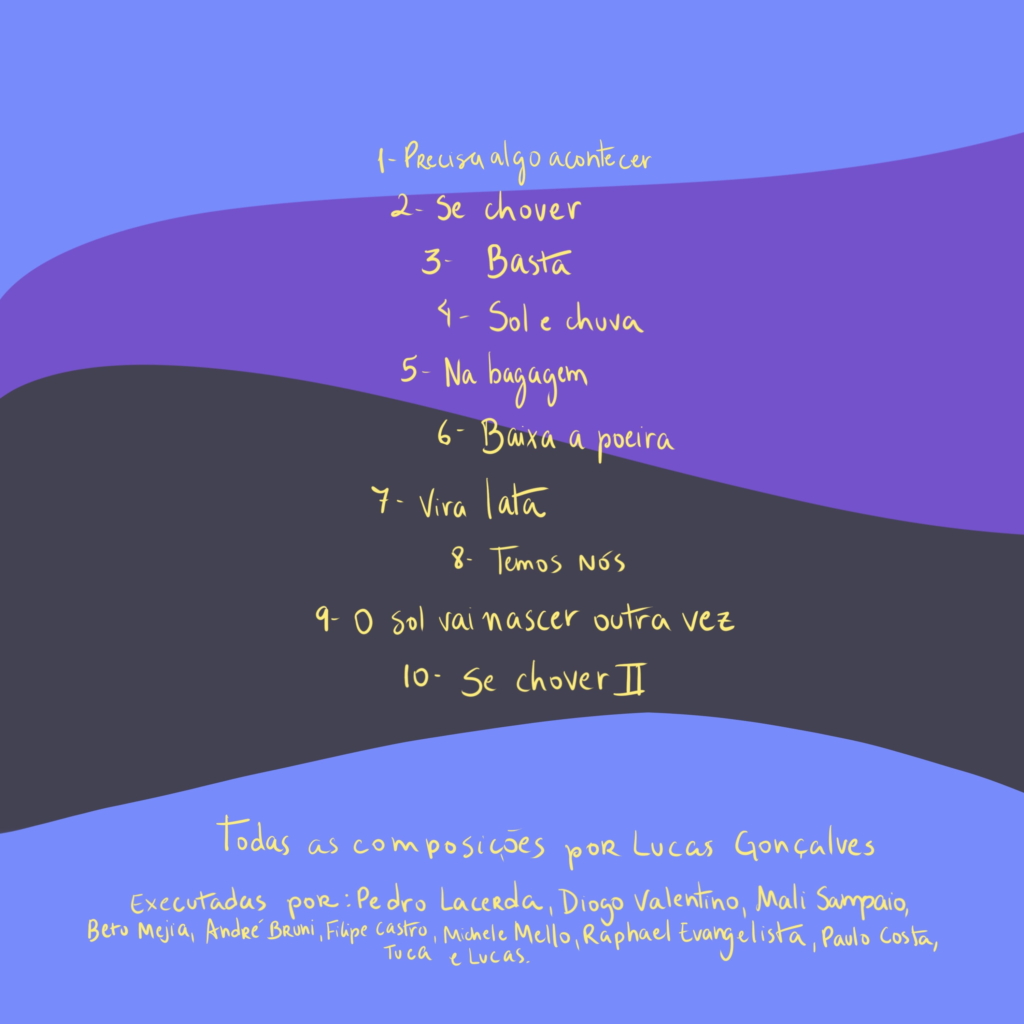 1- Precisa algo acontecer
2- Se chover
3- Basta
4- Sol e chuva
5- Na bagagem
6- Baixa a poeira
7- Vira lata
8- Temos nós
9- O sol vai nascer outra vez
10- Se chover II
Todas as composições por Lucas Gonçalves
Executadas por: Pedro Lacerda, Diogo Valentino, Mali Sampaio,
Beto Mejía, André Bruni, Filipe Castro, Michele Mello, Raphael Evangelista, Paulo Costa,
Tuca e Lucas.